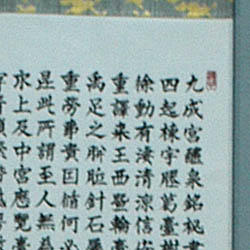 九成宮醴泉銘秘書
四起棟宇膠葛臺
徐動有淒清涼信安
重譯來王西暨輪臺
禹足之胝針石屢
重勞弗貴因何
此所謂至人無
水上及中宮歷覽